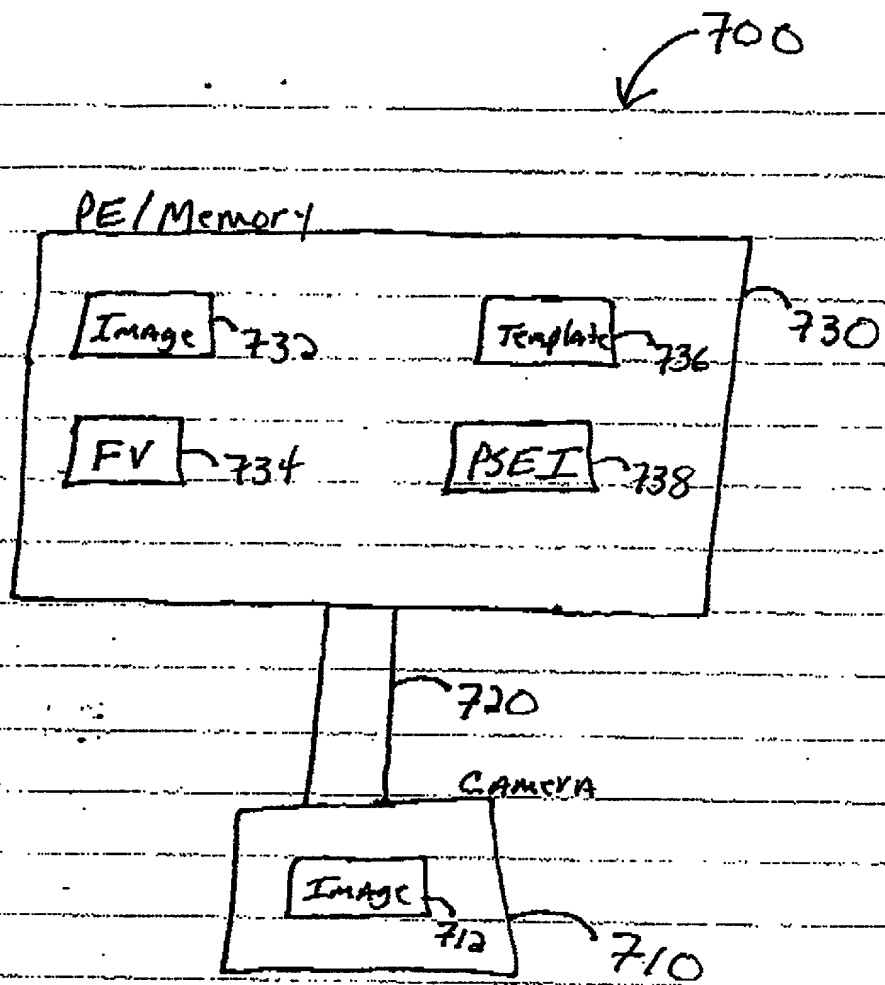 700
PE/Memory
Image 732 Template 736 730
FV 734 PSEI 738
720
Camera
Image 712 710